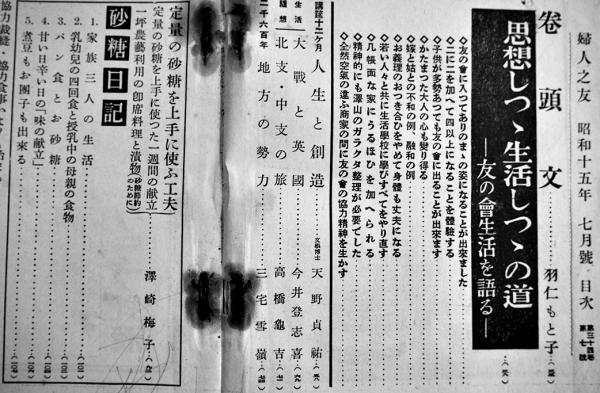 婦人之友 昭和十五年 七月號 目次
第三十四卷 第七號
卷頭文 羽仁もと子
思想しつゝ生活しつゝの道
―友の會生活を語る―
◇友の會に入つてありのまゝの姿になることが出來ました
◇二に二を加へて四以上になることを體驗する
◇子供が多勢あつても友の會に出ることが出來ます
◇かたまつた大人の心も變り得る
◇嫁と姑との不和の例、融和の例
◇お義理のおつき合ひをやめて身體も丈夫になる
◇若い人々と共に生活學校に學びすべてをやり直す
◇几帳面な家にうるほひを加へられる
◇精神的にも澤山のガラクタ整理が必要でした
◇全然空氣の違ふ商家の間に友の會の協力精神を生かす
講話十二ヶ月 人生と創造 文學博士 天野貞祐
生活 大戰と英國 今井登志喜
隨想 北支・中支の旅 高橋龜吉
二千六百年 地方の勢力 三宅雪嶺
定量の砂糖を上手に使ふ工夫
定量の砂糖を上手に使つた一週間の献立
一坪農藝利用の卽席料理と漬物(砂糖節約のために) 澤崎梅子
砂糖日記
1. 家族三人の生活
2. 乳幼兒の四回食と授乳中の母親の食物
3. パン食とお砂糖
4. 甘い日辛い日の「味の献立」
5. 煮豆もお團子も出來る